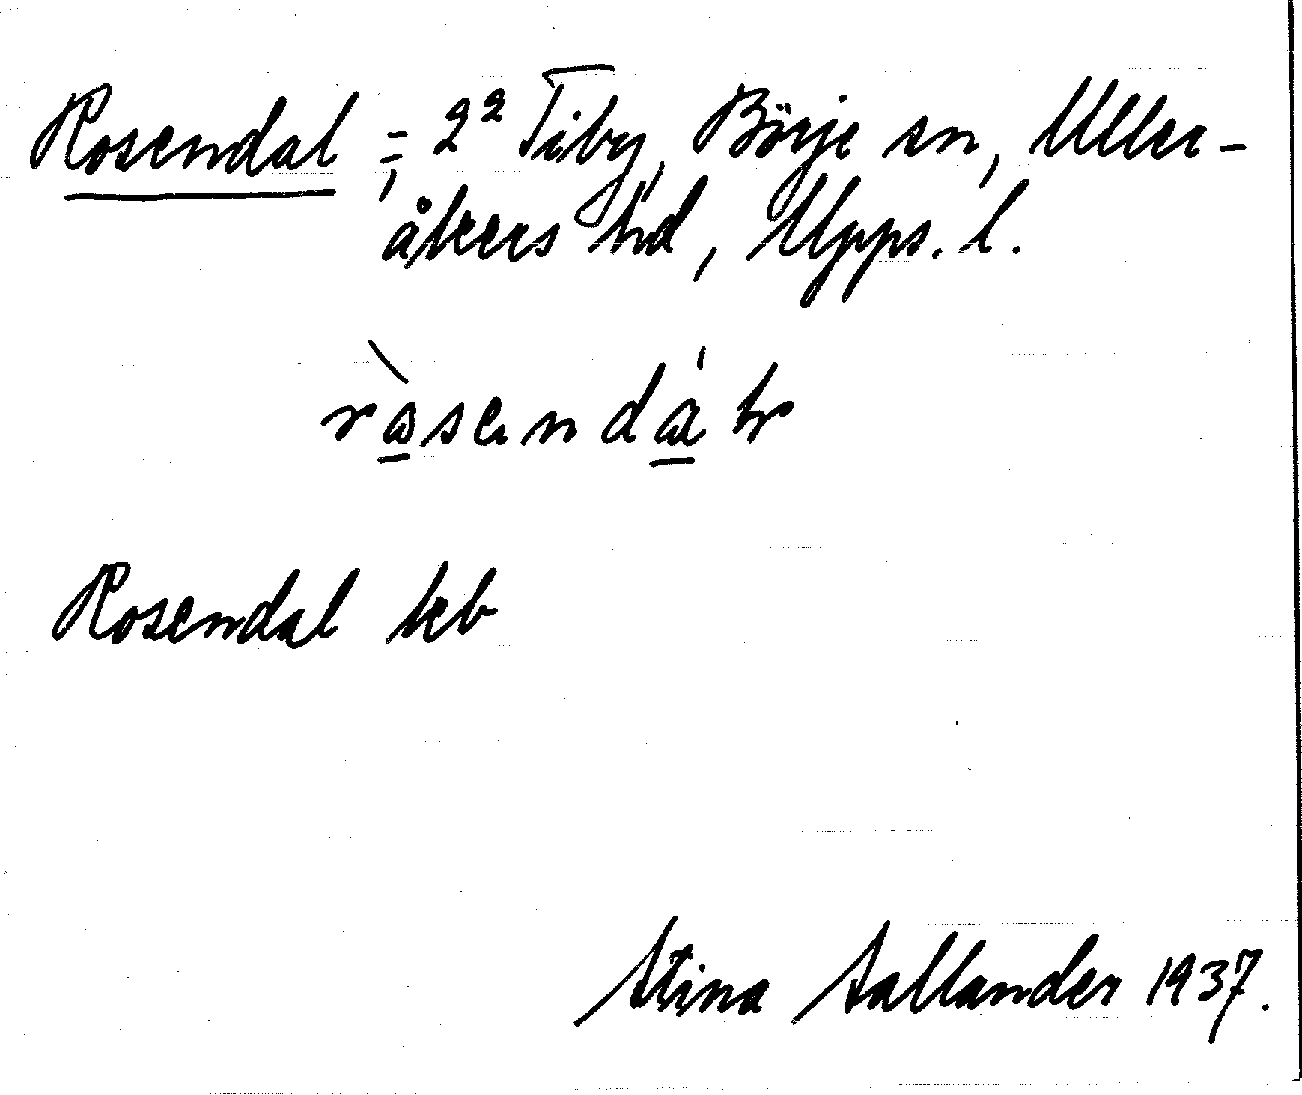 Rosendal, = 2² Tiby, Börje sn, Uller-
åkers hd, Upps. l.
Rosendal kb
Stina Sallander 1937.